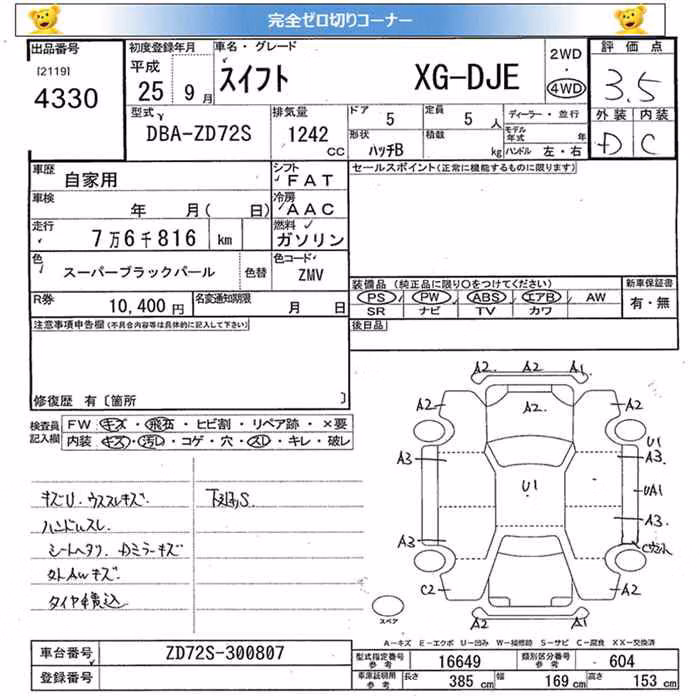 完全ゼロ切りコーナー
出品番号 [2119] 4330
初度登録年月 平成 25年 9月
車名・グレード スイフト XG-DJE
2WD 4WD
評価点 3.5
外装 内装
D C
型式 DBA-ZD72S
排気量 1242 CC
ドア 5
定員 5 人
形状 ハッチB
積載 kg
ディーラー・並行
モデル年式 年
ハンドル 左・右
車歴 自家用
シフト FAT
車検 年 月( 日)
冷房 AAC
走行 7万6千816 km
燃料 ガソリン
色 スーパーブラックパール 色替
色コード ZMV
R券 10,400 円
名変通知期限 月 日
セールスポイント(正常に機能するものに限ります)
装備品 (純正品に限り○をつけてください)
PS PW ABS エアB AW
SR ナビ TV カワ
新車保証書 有・無
後日品
注意事項申告欄(不具合内容等は具体的に記入して下さい)
修復歴 有〔箇所 〕
検査員記入欄
FW キズ・飛石・ヒビ割・リペア跡・×要
内装 キズ・汚レ・コゲ・穴・スレ・キレ・破レ
キズU.ウススレキズ.
ハンドルスレ
シートヘタリ.Dミラーキズ
外AWキズ.
タイヤ積込
下廻りS
A2 A2 A1
A2 A2 A2
U1
A3 A3
U1 UA1
A3 A3
C2 A2
A2 A1
スペア
A-キズ E-エクボ U-凹み W-補修跡 S-サビ C-腐食 XX-交換済
車台番号 ZD72S-300807
登録番号
型式指定番号 参考 16649
類別区分番号 参考 604
車庫証明用 参考 長さ 385 cm 幅 169 cm 高さ 153 cm